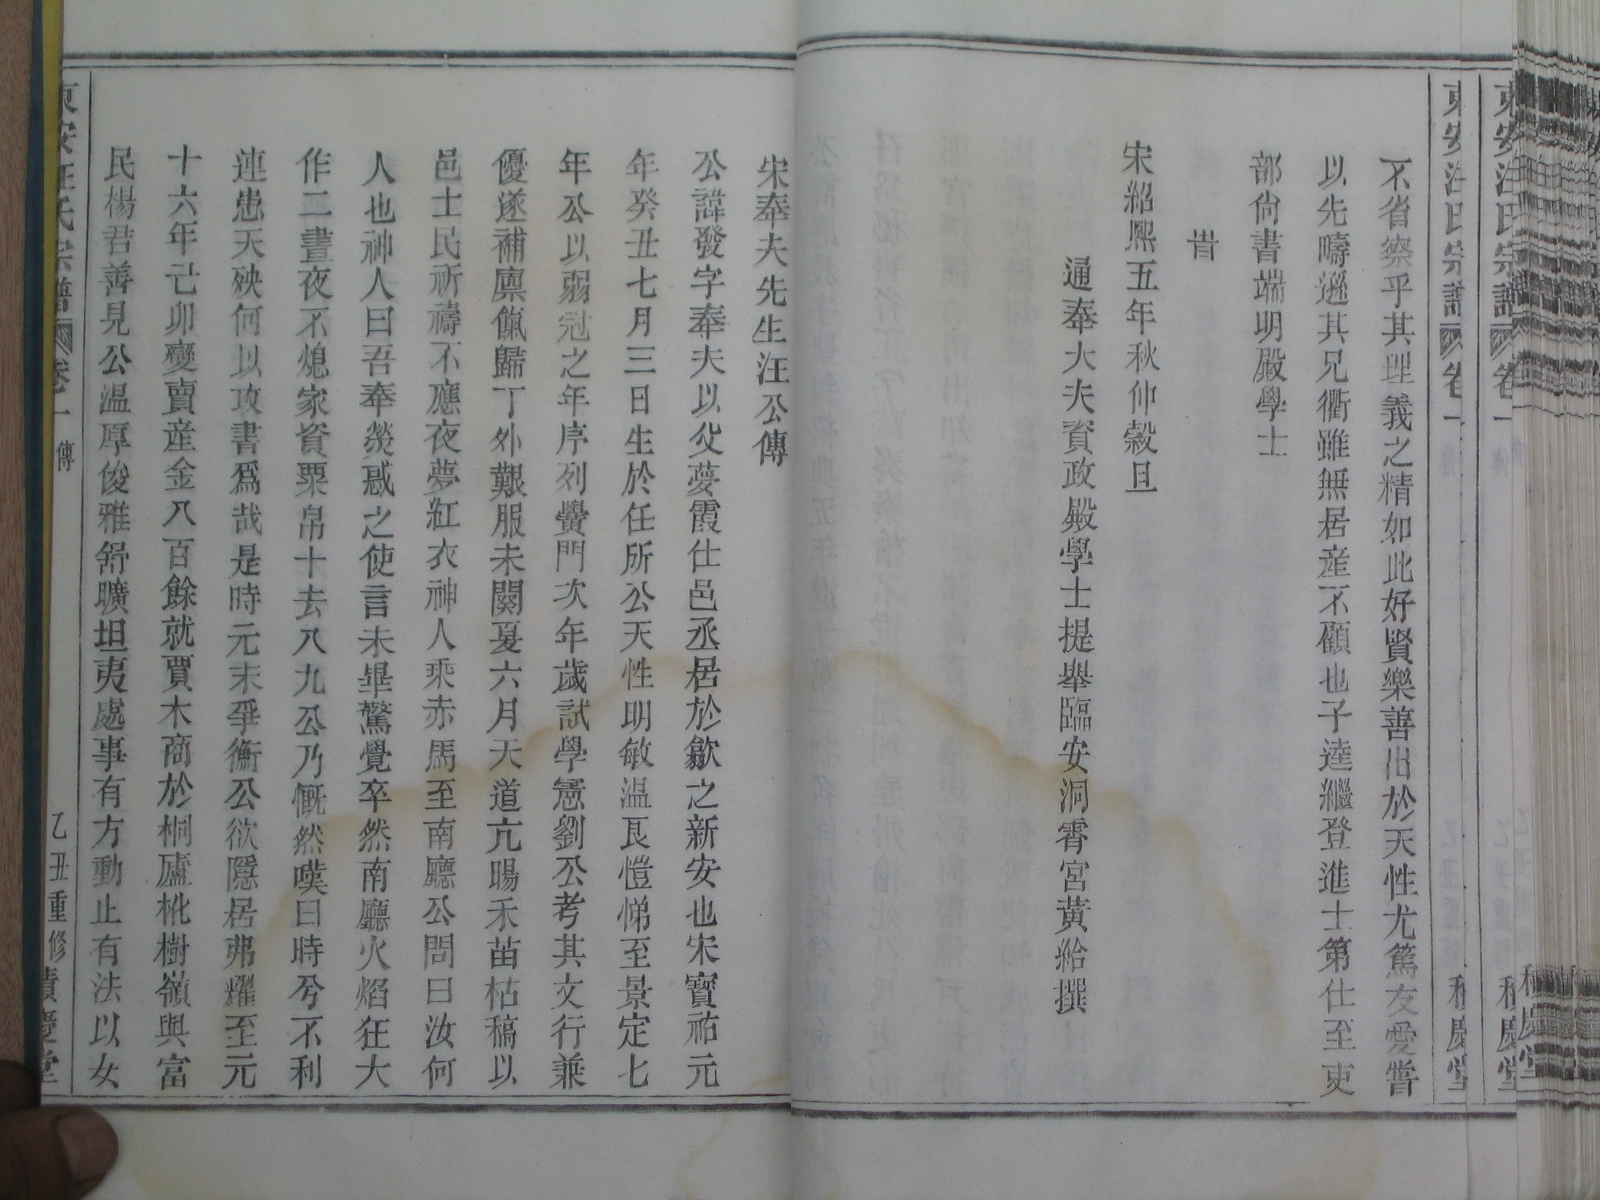 東安汪氏宗譜 卷一 積慶堂
不省察乎其理義之精如此好賢樂善出於天性尤篤友愛嘗
以先疇遜其兄衢雖無居産不顧也子逵繼登進士第仕至吏
部尙書端明殿學士
旹
宋紹熙五年秋仲穀旦
通奉大夫資政殿學士提舉臨安洞霄宮黃給撰
宋奉夫先生汪公傳
公諱發字奉夫以父夢霞仕邑丞居於歙之新安也宋寳祐元
年癸丑七月三日生於任所公天性明敏温良愷悌至景定七
年公以弱冠之年序列黌門次年歲試學憲劉公考其文行兼
優遂補廪餼歸丁外艱服未闋夏六月天道亢暘禾苗枯稿以
邑士民祈禱不應夜夢紅衣神人乘赤馬至南廳公問曰汝何
人也神人曰吾奉熒惑之使言未畢驚覺卒然南廳火焰狂大
作二晝夜不熄家資粟帛十去八九公乃慨然嘆曰時兮不利
連患天殃何以攻書爲哉是時元末爭衡公欲隱居弗耀至元
十六年己卯變賣産金八百餘就賈木商於桐廬枇樹嶺與富
民楊君善見公温厚俊雅舒曠坦夷處事有方動止有法以女
東安汪氏宗譜 卷一 傳 乙丑重修 積慶堂